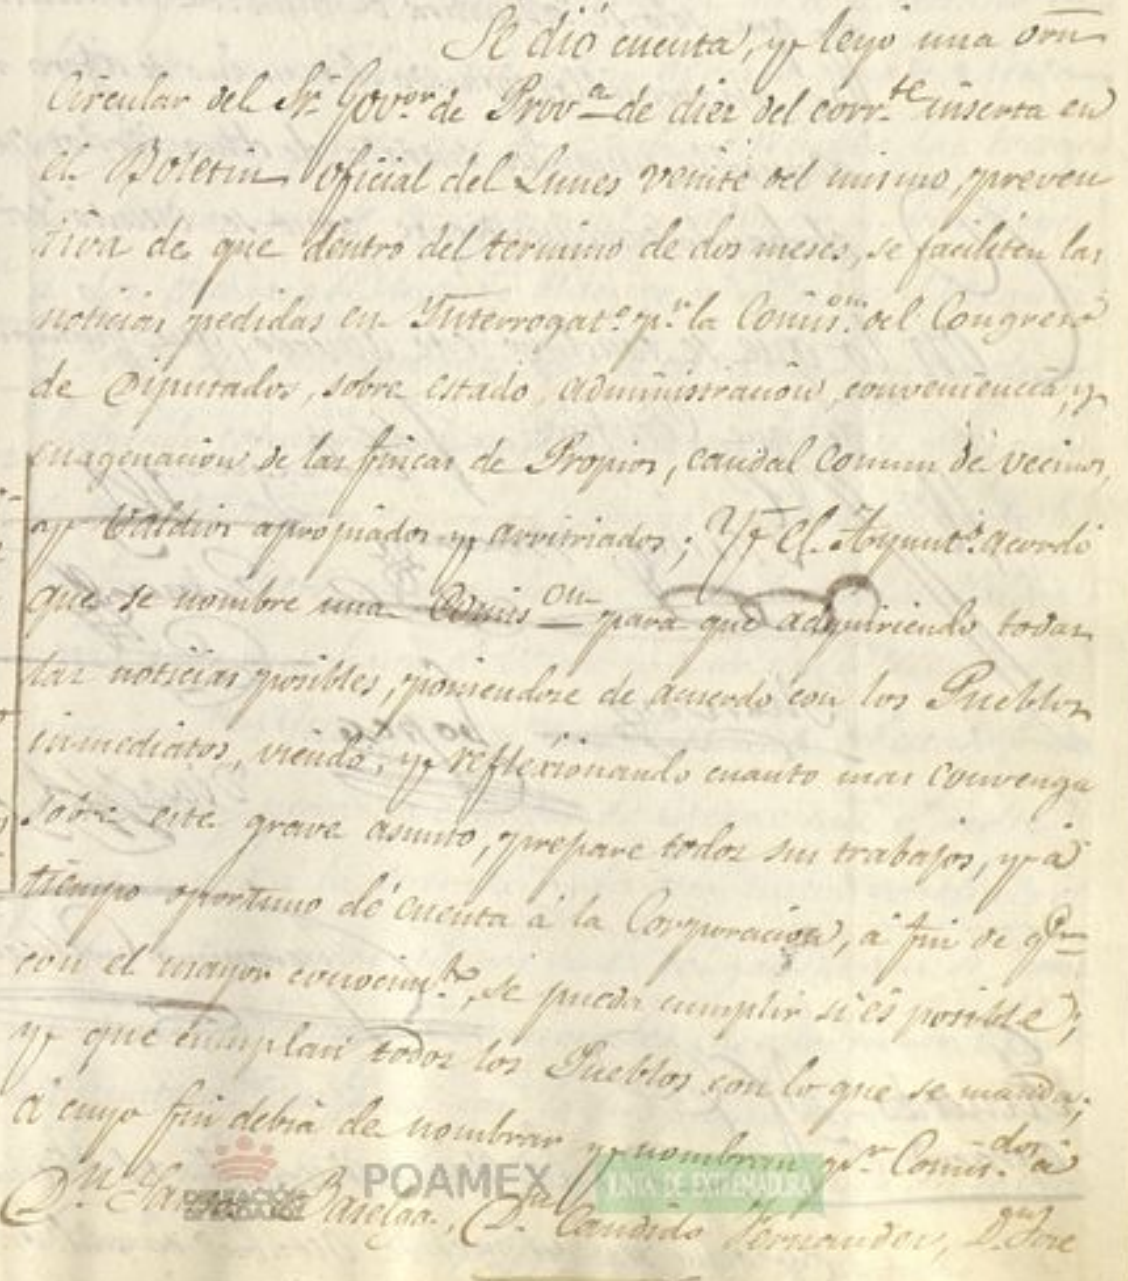 Se dió cuenta, y leyó una orn
Circular del Sr. Govor. de Prova. de diez del corrte. inserta en
el Boletin oficial del Lunes veinte del mismo, preven
tiva de que dentro del termino de dos meses, se faciliten las
noticias pedidas en Interrogato. pr. la Comison. del Congreso
de Diputados, sobre estado, administracion, conveniencia, y
enagenacion de las fincas de Propios, caudal comun de vecinos,
y Valdios apropiados y arvitriados; Y el Ayunto. acordó
que se nombre una Comison para que adquiriendo todas
las noticias posibles, poniendose de acuerdo con los Pueblos
inmediatos, viendo, y reflexionando cuanto mas convenga
sobre este grave asunto, prepare todos sus trabajos, y á
tiempo oportuno dé cuenta á la Corporacion, á fin de qe.
con el mayor conocimto., se pueda cumplir si es posible;
y que cumplan todos los Pueblos con lo que se manda;
á cuyo fin debia de nombrar y nombran pr. Comisdos. á
Dn. Barelga, Dn. Candido Fernandez, Dn. Jose
DIPUTACIÓN
DE BADAJOZ
POAMEX
JUNTA DE EXTREMADURA